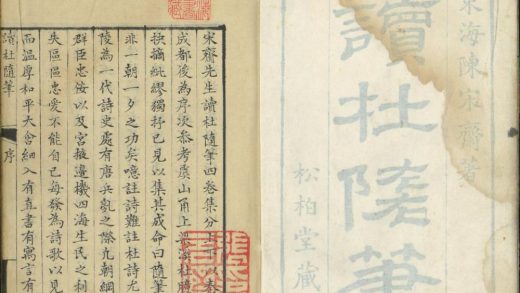 東海陳宋齋著
讀杜隨筆
松柏堂藏
宋齋先生讀杜隨筆四卷集分上下以秦
成都後為序次參考虞山甬上梁溪杜
抉摘紕繆獨抒己見以集其成命曰隨筆
非一朝一夕之功矣噫註詩難註杜詩尤
陵為一代詩史處有唐兵亂之際凡朝綱
群臣忠佞以及宮掖邊機四海生民之利
失區區忠愛不能自已每發為詩歌以見
而溫厚和平大含細入有直書有寓言有
讀杜隨筆 序